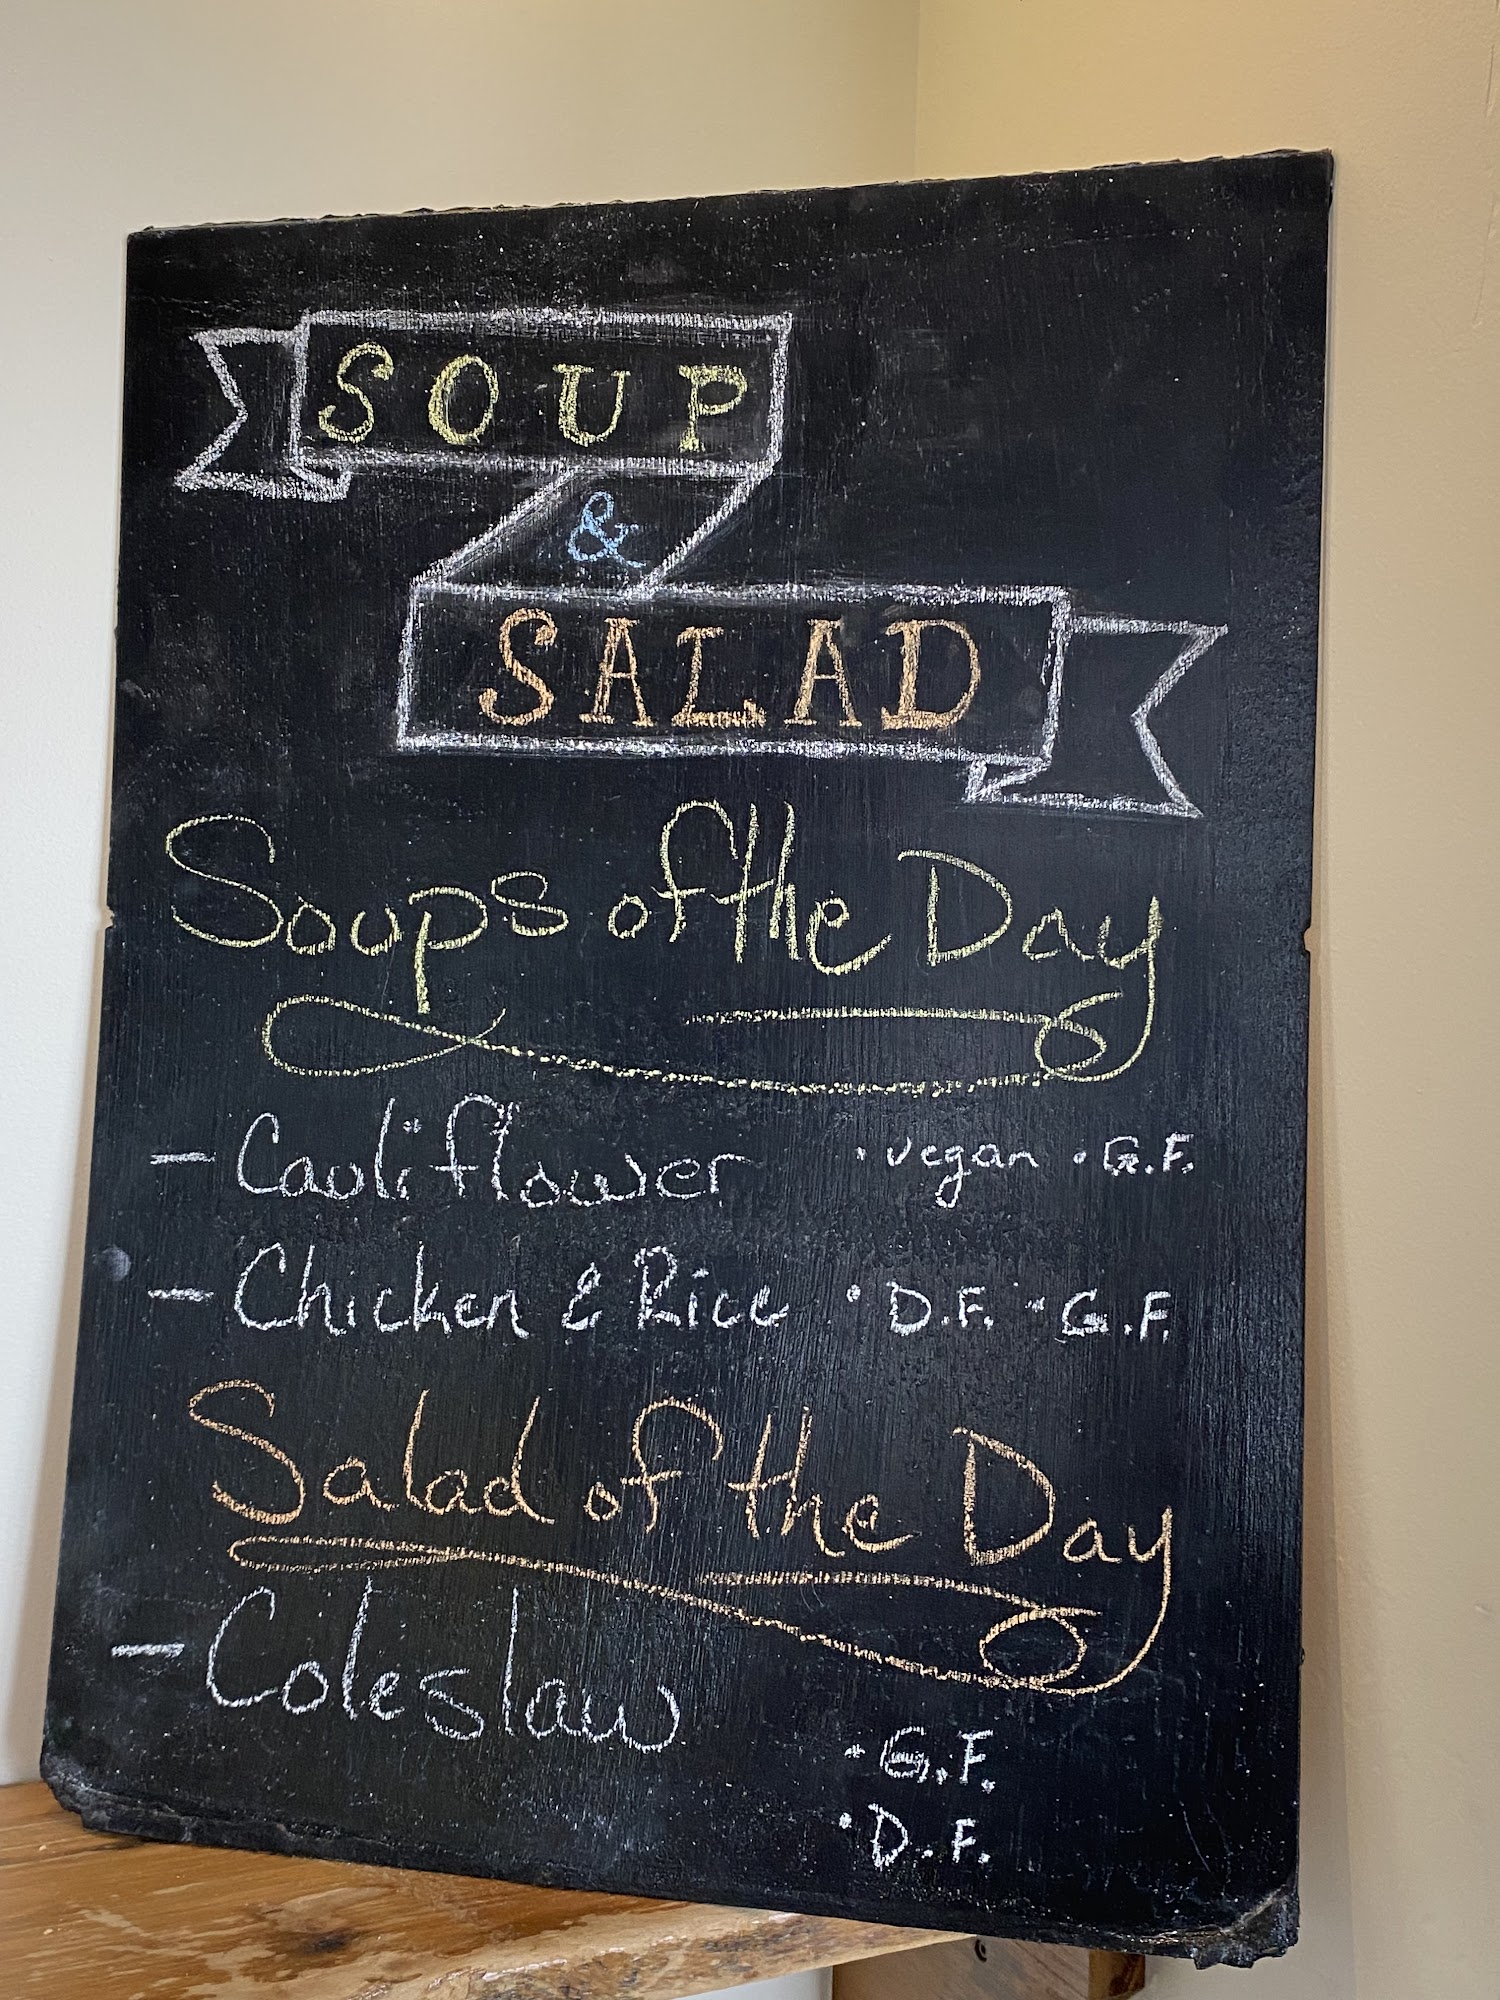 SOUP
&
SALAD
Soups of the Day
- Cauliflower • vegan • G.F.
- Chicken & Rice • D.F. • G.F.
Salad of the Day
- Coleslaw
• G.F.
• D.F.